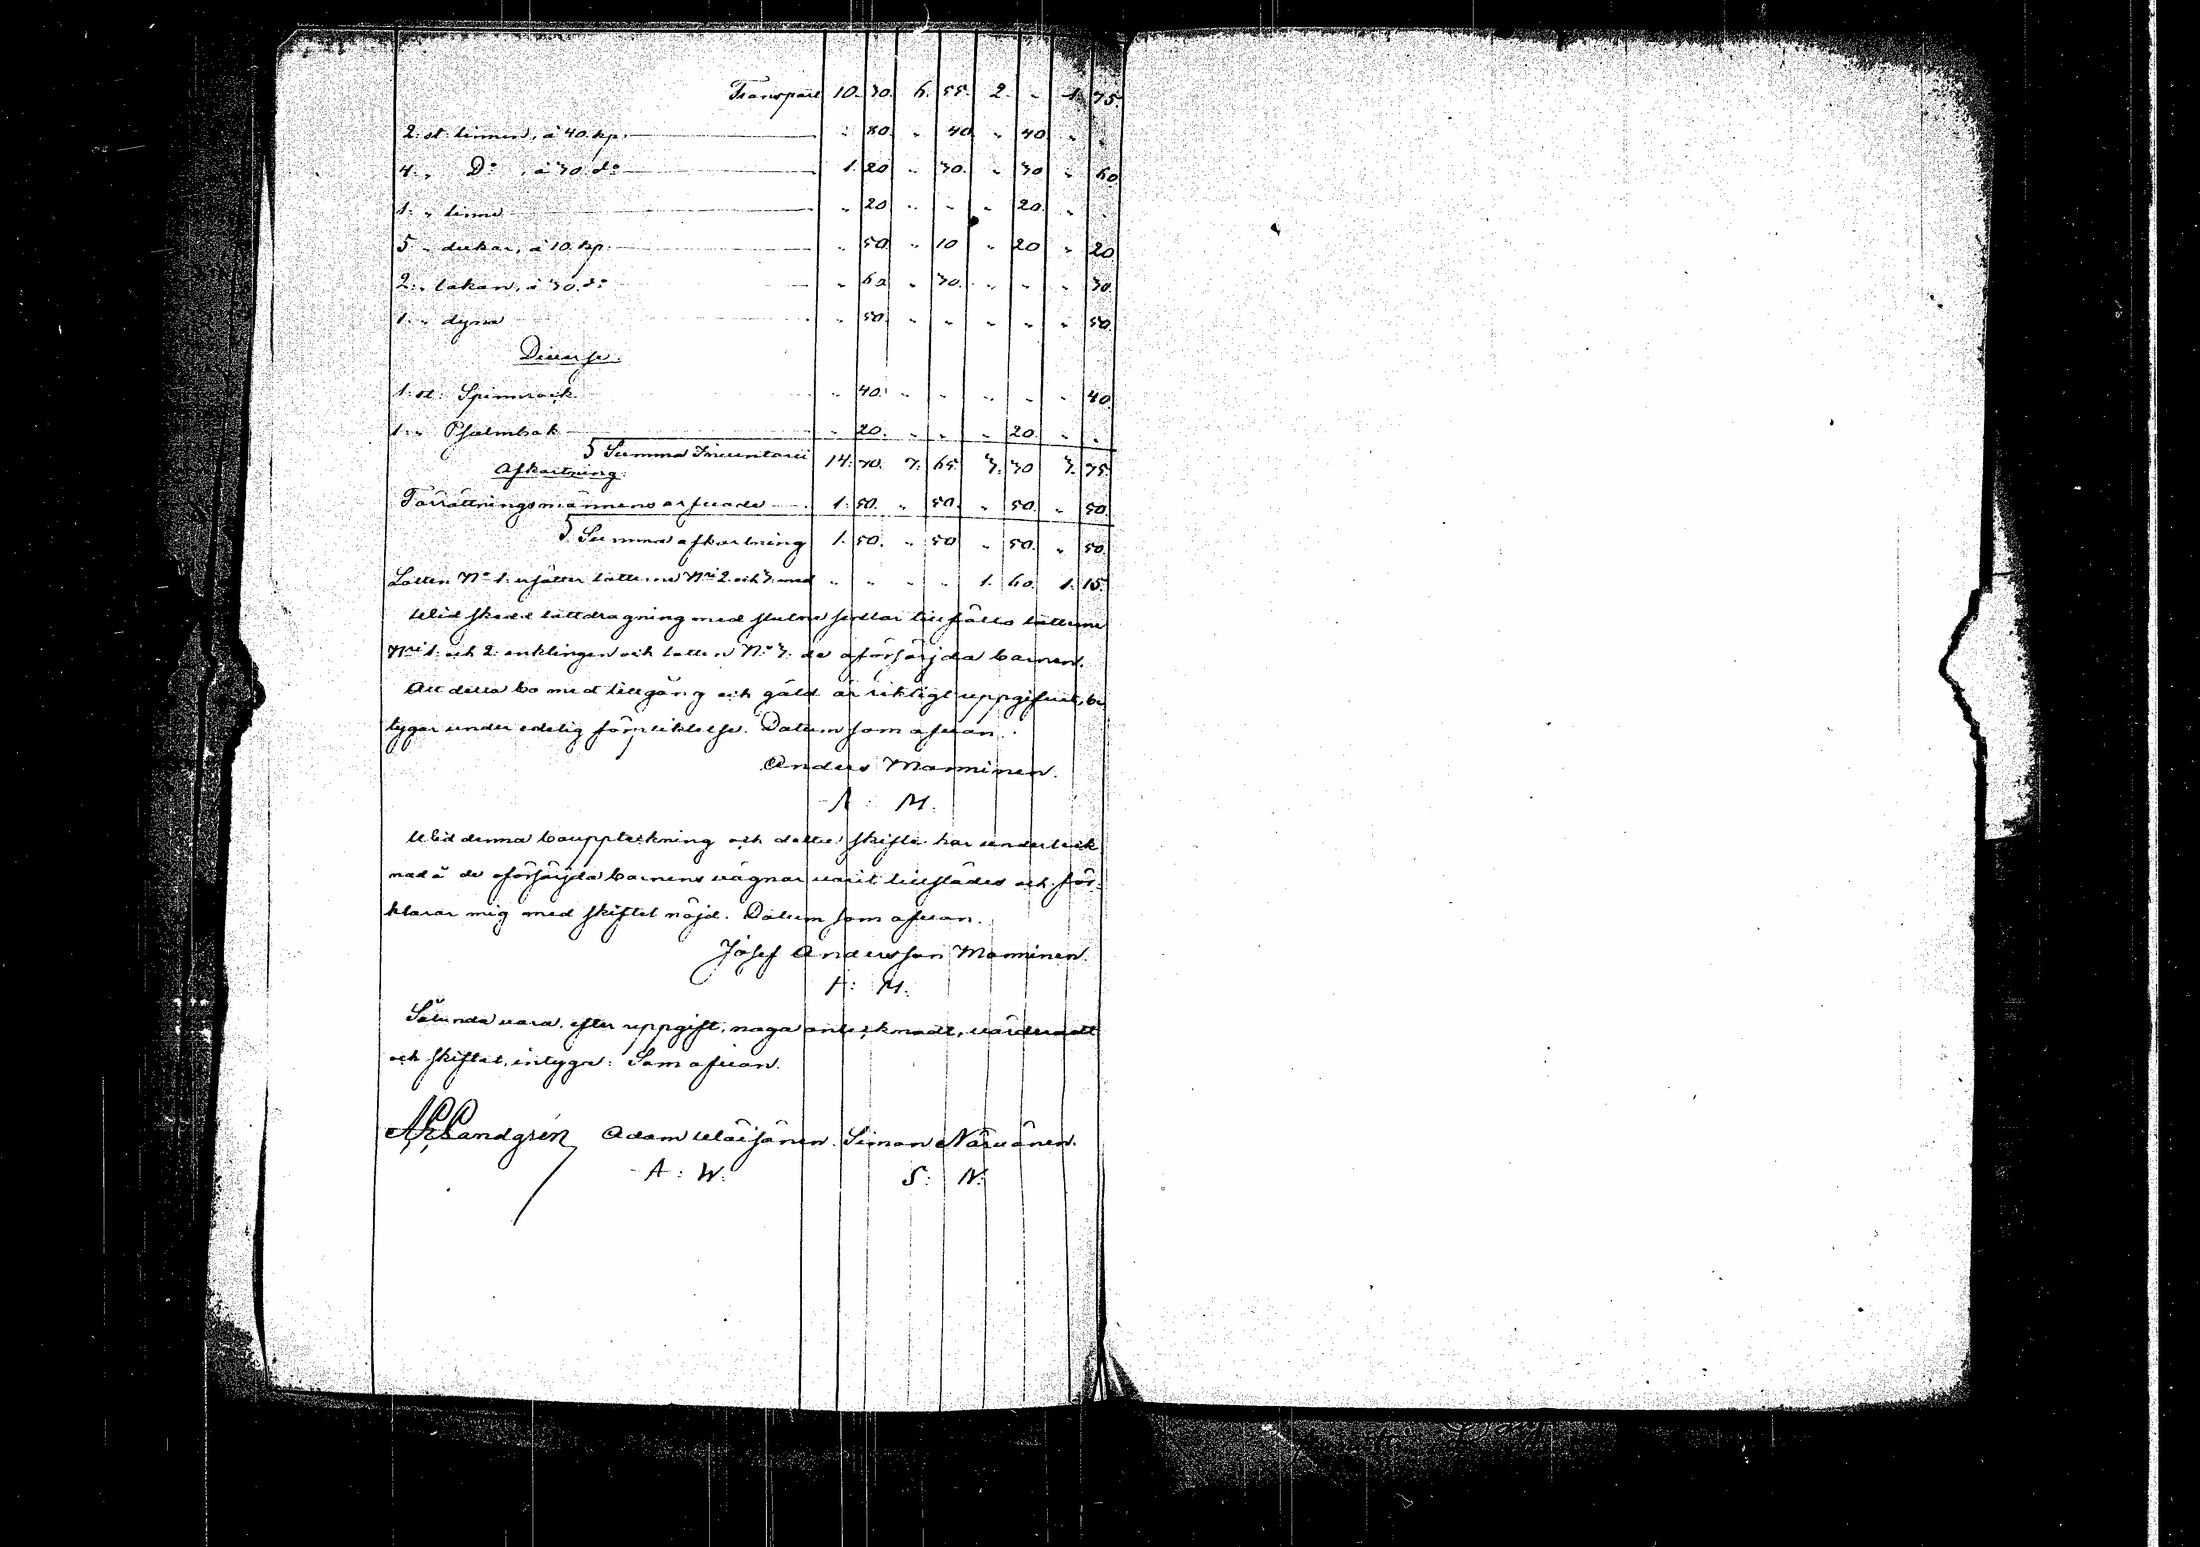 Transport 10. 30. 6. 55. 2. " 1. 75
2. st. linnen, à 40. kp. " 80. " 40 " 40 "
4. " D:o , à 30. d:o 1. 20 " 30. " 30 " 60
1. " linne " 20 " " " 20. " "
5 " dukar, à 10. kp. " 50. " 10 " 20 " 20
2. " lakan, à 30. d:o " 60 " 30. " " " 30.
1. " dyna " 50. " " " " " 50.
Diverse.
1. st. Spinnrock " 40. " " " " " 40
1. " Psalmbok " 20. " " " 20. " "
S Summa Inventarii 14. 70. 7. 65. 3. 30 3. 75.
Afkortning.
Förrättningsmännens arfvode 1. 50. " 50. " 50. " 50.
S. Summa afkortning 1. 50. " 50 " 50. " 50.
Lotten N:o 1. ersätter lotterne N:ri 2. och 3. med " " " " 1. 60. 1. 15.
Wid skedd lottdragning med slutne sedlar tillföllo lotterne
N:ri 1. och 2. enklingen och lotten N:o 3. de oförsörjda barnen.
Att detta bo med tillgång och gäld är riktigt uppgifvit, be
tygar under edelig förpliktelse. Datum som ofvan.
Anders Manninen.
A: M.
Wid denna bouppteckning och detta skifte har underteck
nad å de oförsörjda barnens vägnar varit tillstädes och för-
klarar mig med skiftet nöjd. Datum som ofvan.
Josef Andersson Manninen.
I: M.
Sålunda vara, efter uppgift, noga antecknadt, värderadt
och skiftet, intyga: Som ofvan.
Landgrén Adam Wäisänen. Simon Närvänen.
A: W. S: N.